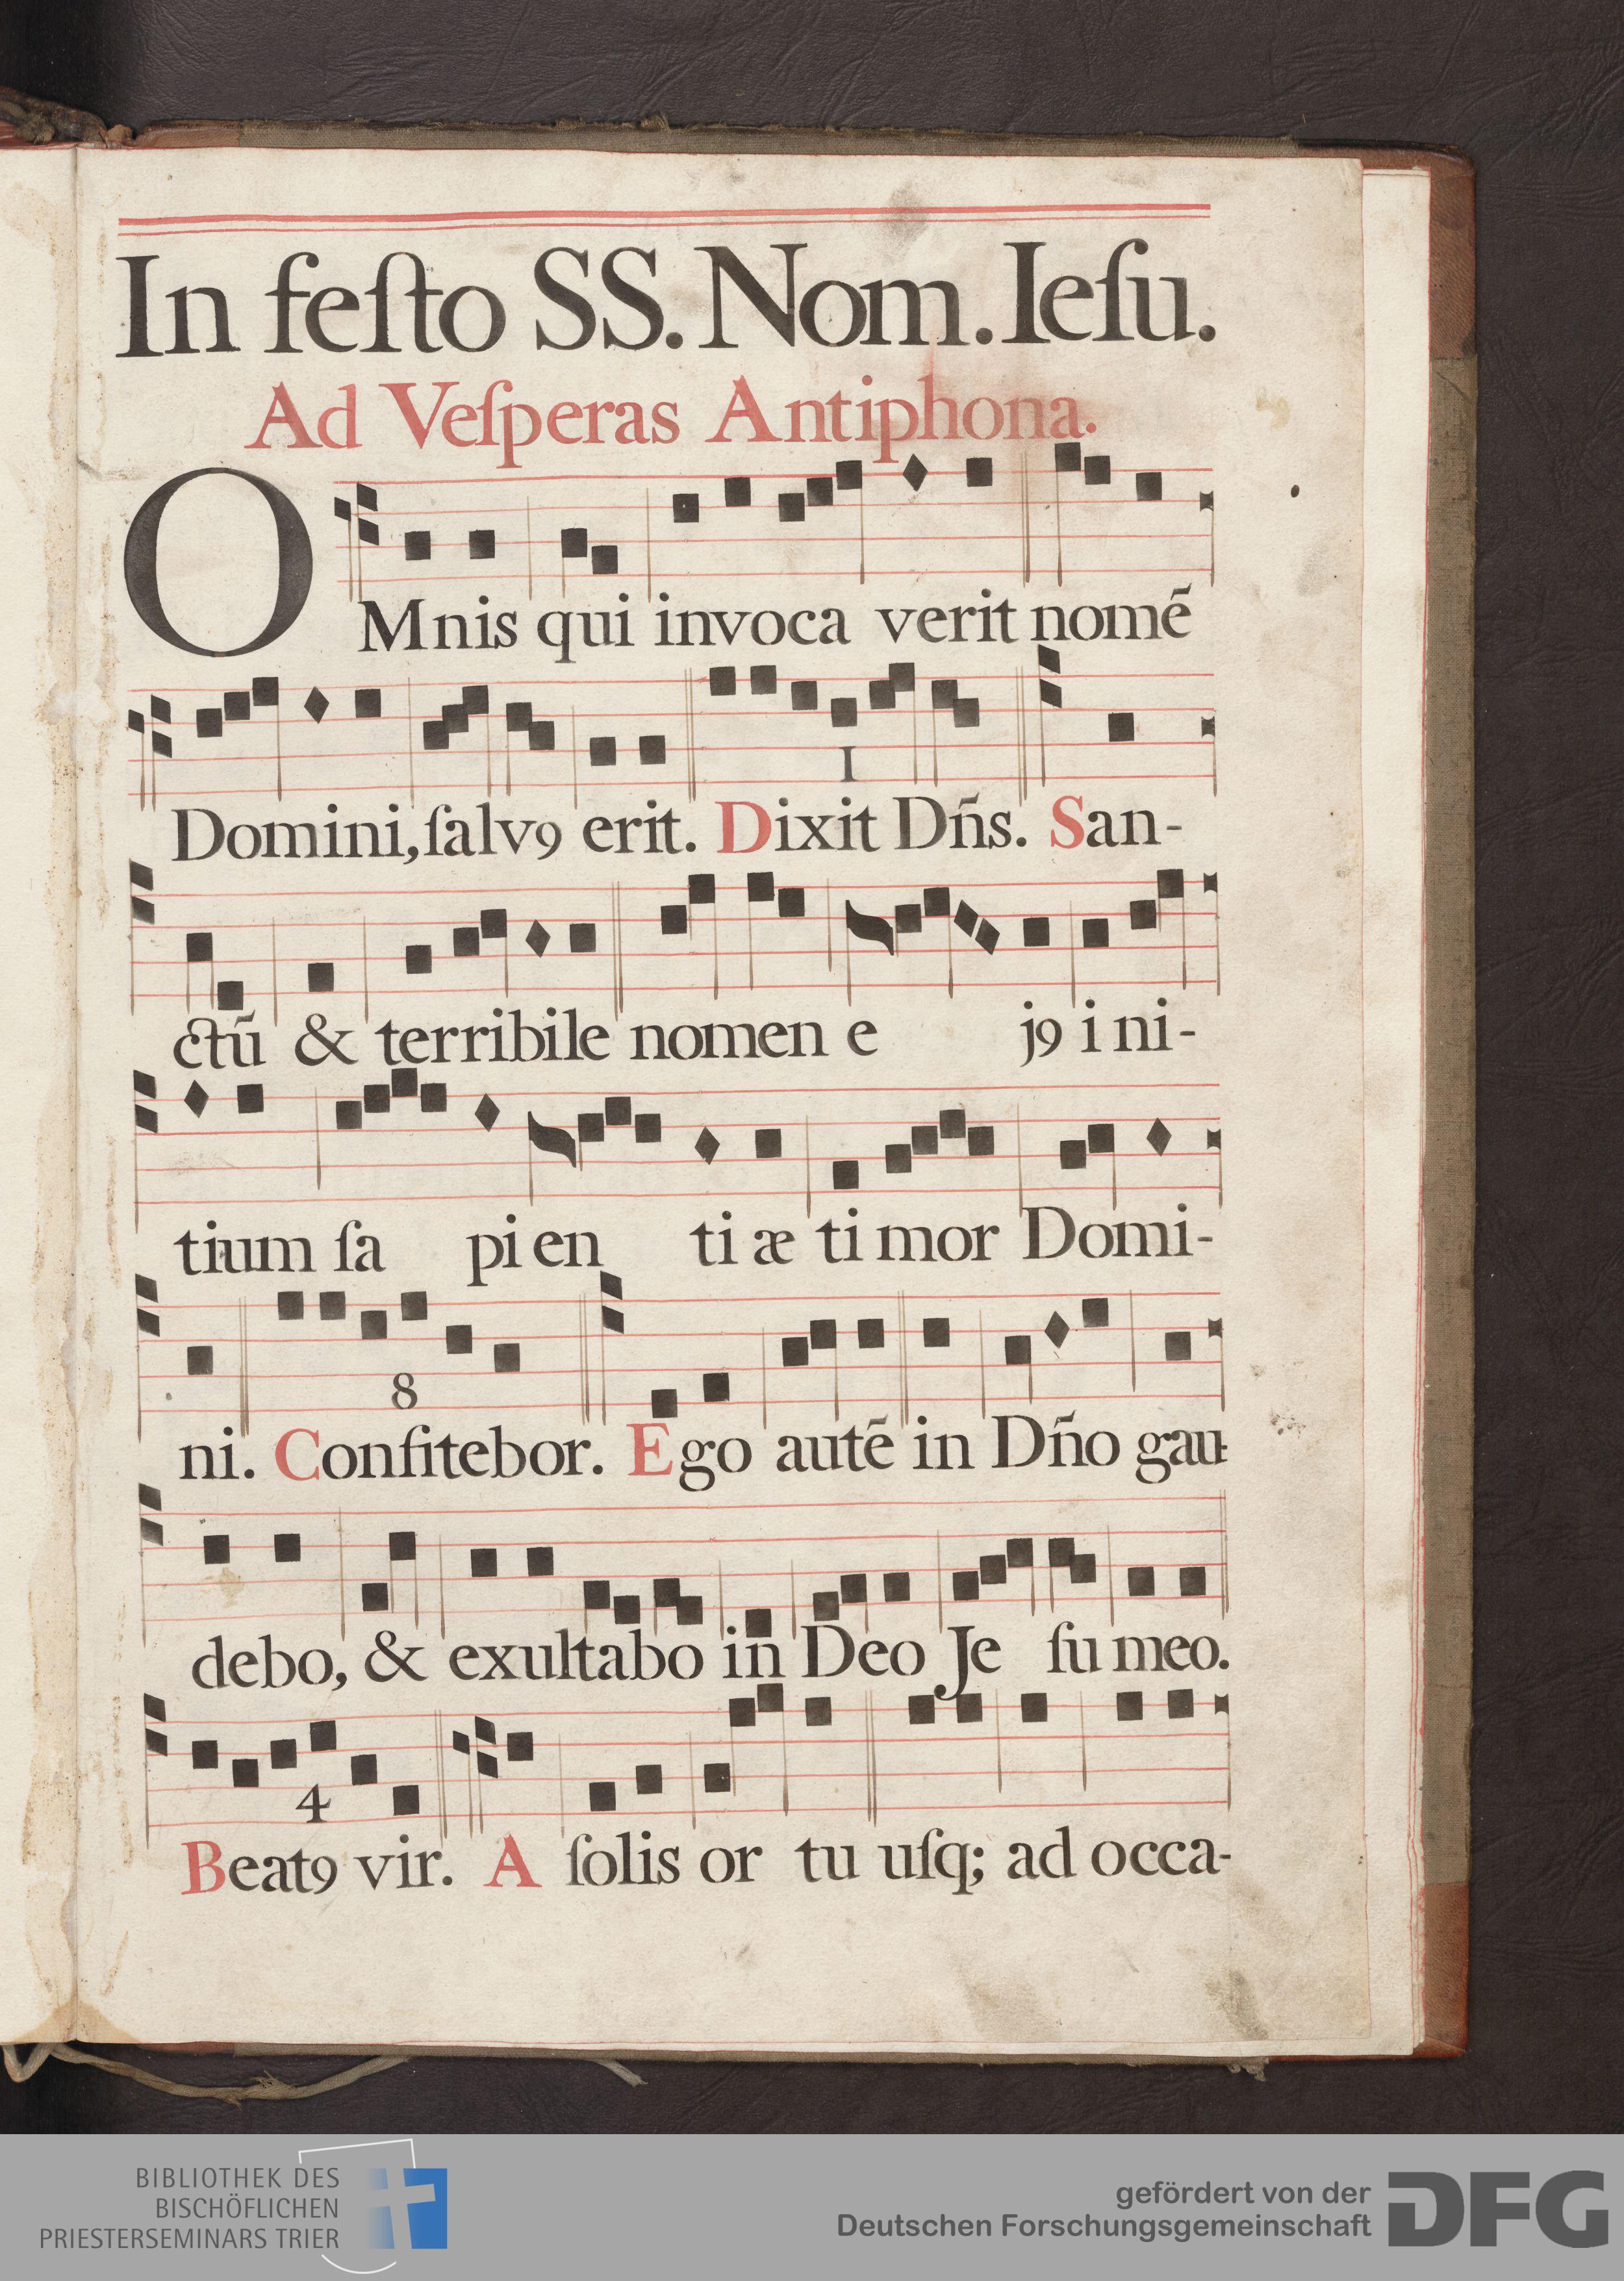 In feſto SS. Nom. Ieſu.
Ad Veſperas Antiphona.
OMnis qui invoca verit nomẽ
1
Domini, ſalvꝯ erit. Dixit Dñs. San-
ctũ & terribile nomen e jꝯ i ni-
tium ſa pi en ti æ ti mor Domi-
8
ni. Confitebor. Ego autẽ in Dño gau-
debo, & exultabo in Deo Je ſu meo.
4
Beatꝯ vir. A ſolis or tu uſq; ad occa-
BIBLIOTHEK DES
BISCHÖFLICHEN
PRIESTERSEMINARS TRIER
gefördert von der
Deutschen Forschungsgemeinschaft
DFG